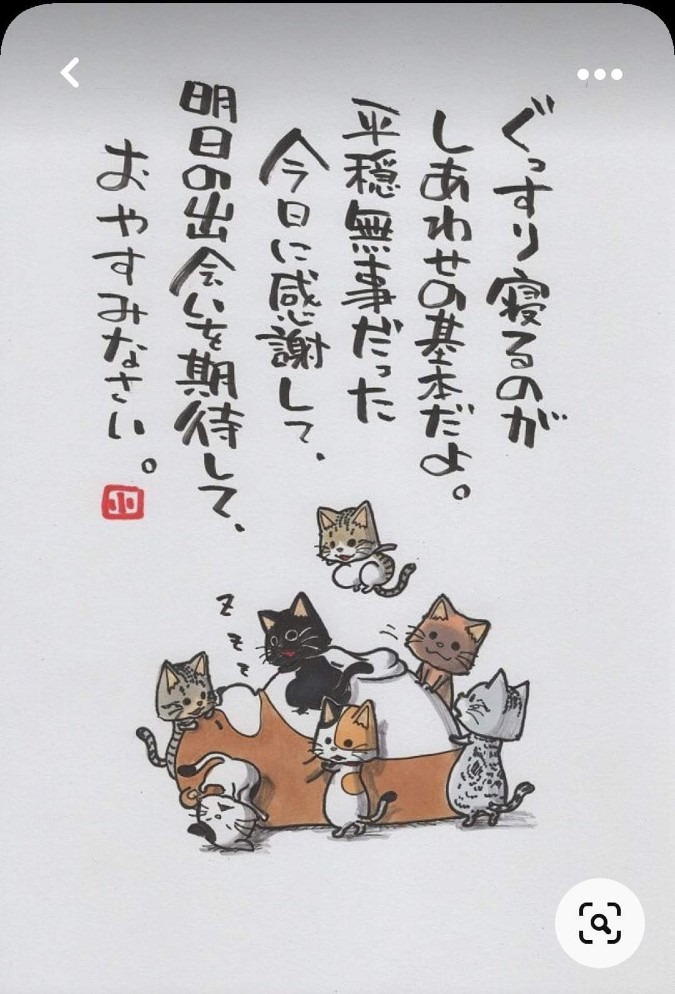 ぐっすり寝るのが
しあわせの基本だよ。
平穏無事だった
今日に感謝して、
明日の出会いを期待して、
おやすみなさい。
z
z
z
z